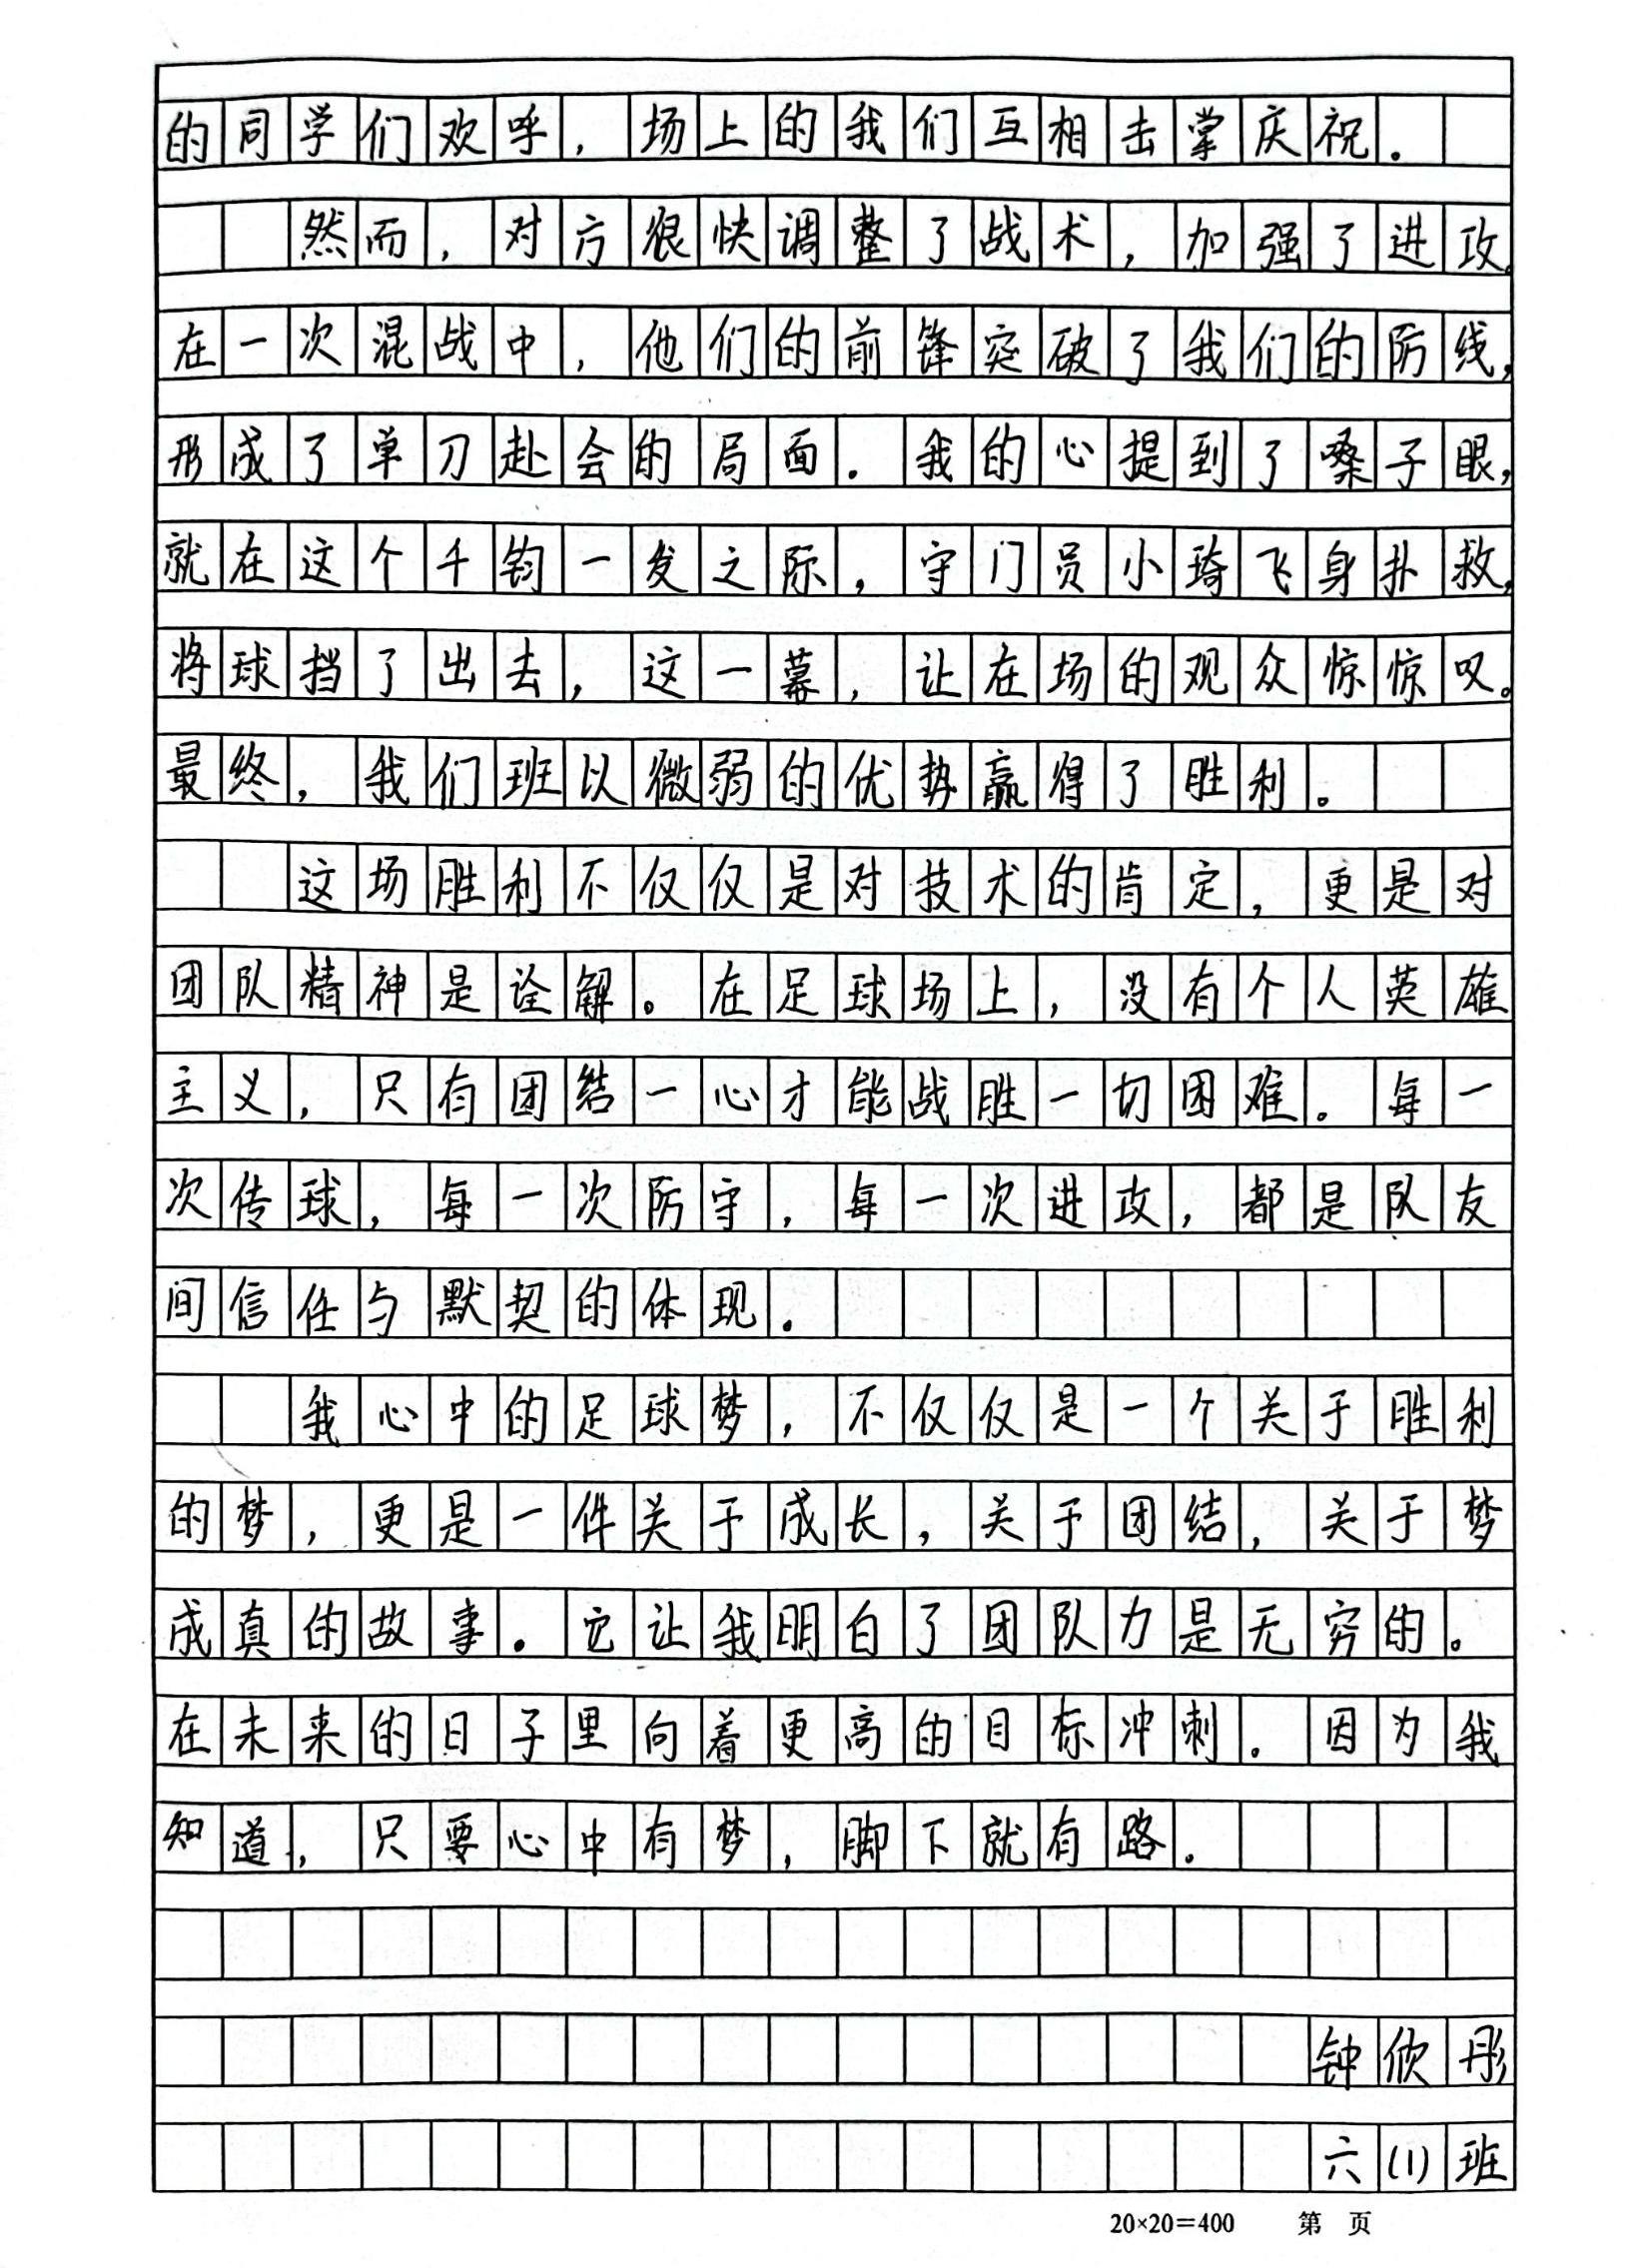 的同学们欢呼，场上的我们互相击掌庆祝。
然而，对方很快调整了战术，加强了进攻。
在一次混战中，他们的前锋突破了我们的防线，
形成了单刀赴会的局面。我的心提到了嗓子眼，
就在这个千钧一发之际，守门员小琦飞身扑救，
将球挡了出去，这一幕，让在场的观众惊惊叹。
最终，我们班以微弱的优势赢得了胜利。
这场胜利不仅仅是对技术的肯定，更是对
团队精神是诠解。在足球场上，没有个人英雄
主义，只有团结一心才能战胜一切困难。每一
次传球，每一次防守，每一次进攻，都是队友
间信任与默契的体现。
我心中的足球梦，不仅仅是一个关于胜利
的梦，更是一件关于成长，关于团结，关于梦
成真的故事。它让我明白了团队力是无穷的。
在未来的日子里向着更高的目标冲刺。因为我
知道，只要心中有梦，脚下就有路。
钟欣彤
六(1)班
20×20=400 第 页